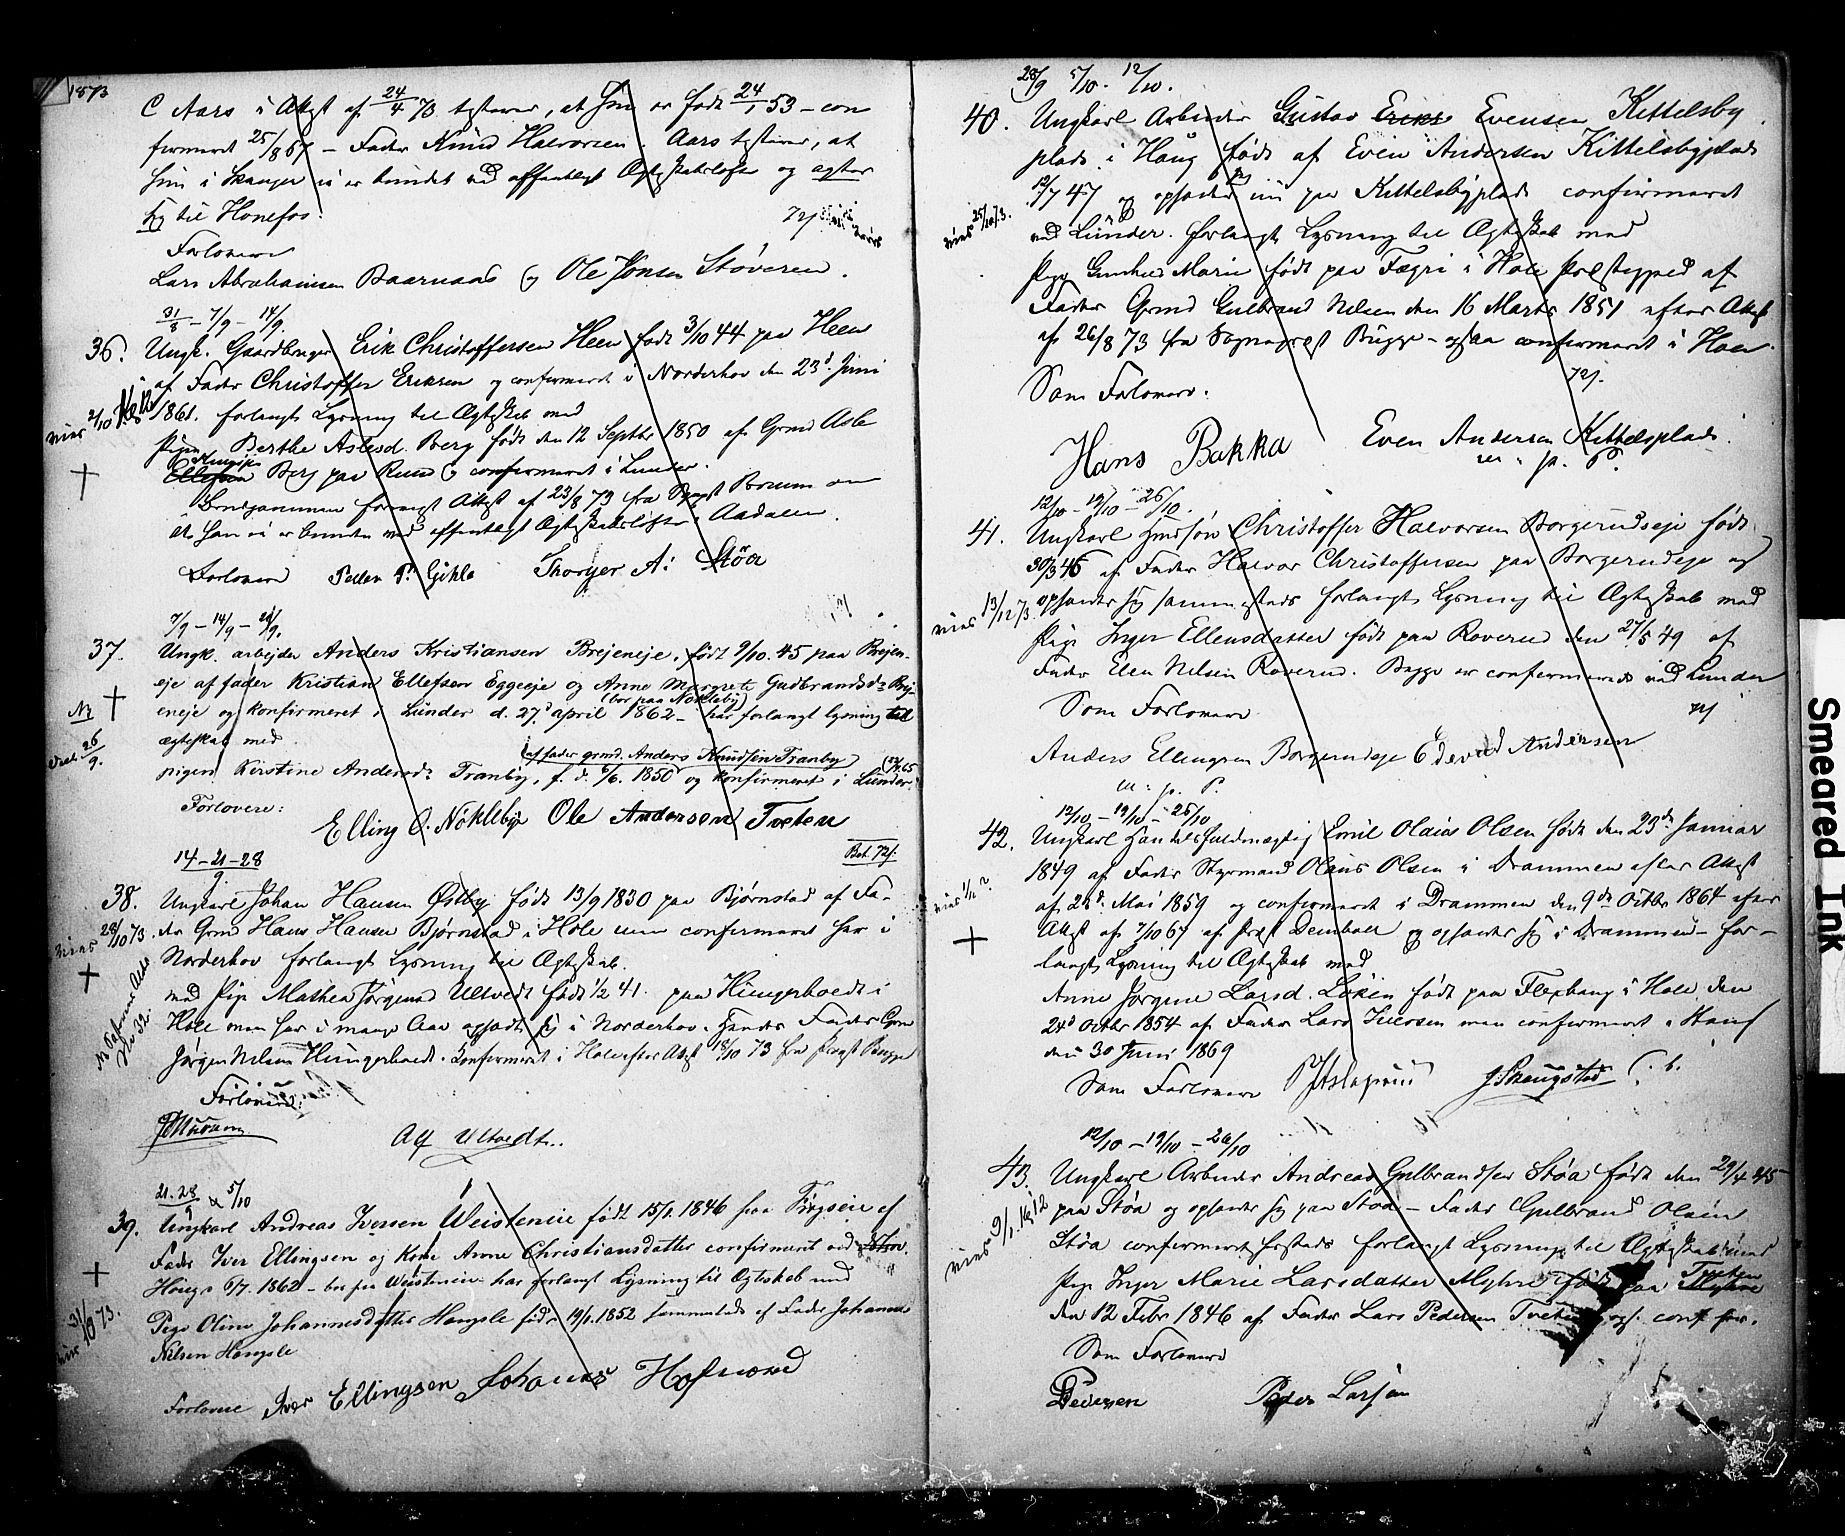 1873
C Aars i Attest af 24/4 73 testerer, at hun er født 24/1 53 – con
firmeret 25/8 67 – Fader Knud Halvorsen. Aars testerer, at
hun i Skanger ei er bundet ved offentligt Ægteskabsløfte og agter
sig til Honefos.
72 ſ
Forlovere
Lars Abrahamsen Baarnaas og Ole Jonsen Støveren.
31/8 – 7/9 – 14/9.
36. Ungk. Gaardbruger Erik Christoffersen Heen født 3/10 44 paa Heen
af Fader Christoffer Eriksen og confirmeret i Norderhov den 23d Juni
viet 2/10
1861. forlangt Lysning til Ægteskab med
Pigen Berthe Aslesd. Berg født den 12 Septbr 1850 af Grmd Asle
Ellefsen Berg paa Rund og confirmeret i Lunder.
Brudgommen foreviist Attest af 23/8 73 fra Præst om
at han ei er bunden med offentligt Ægteskabsløfte i Aadalen.
Forlovere Peder P. Gihle Thorger A: Stöa
7/9 – 14/9 – 21/9.
37. Ungk. arbejder Anders Kristiansen Brejeneje, født 9/10. 45 paa Brejen-
eje af fader Kristian Ellefsen Eggeeje og Anne Margrete Gudbrandsdr Brej-
(bor paa Nøkleby)
eneje og konfirmeret i Lunder d. 27d april 1862 – har forlangt lysning til
ægteskab med
viet 26/9.
(af fader grmd. Anders Knudsen Tranby)
pigen Kirstine Andersdr Tranby, f. d. 6/6. 1850 og konfirmeret i Lunder.
Forlovere:
Elling O. Nökleby Ole Andersen Tveten
Bet. 72 ſ.
14 – 21 – 28
9
38. Ungkarl Johan Hansen Østby født 13/9 1830 paa Bjørnstad af Fa-
viet 28/10 73.
der Grmd Hans Hansen Bjørnstad i Hole men confirmeret her i
Norderhov forlangt Lysning til Ægteskab.
med Pige Mathea Jørgensd Ultvedt født 1/2 41. paa Hungerholdt i
Hole men har i mange Aar opholdt sig i Norderhov. Hendes Fader Grm
Jørgen Nilsen Hungerholdt. Confirmeret i Hole efter Attest 18/10 73 fra Prest Bugge
No 32.
Forlovere:
A G Ultvedt.
21. 28/9 & 5/10
39. Ungkarl Andreas Iversen Weisteneie født 15/1. 1846 paa eie af
Fader Iver Ellingsen og Kone Anne Christiansdatter confirmeret ved
Hougs 6/7. 1862 – bor paa Weisteneie har forlangt Lysning til Ægteskab med
viet 31/10 73.
Pige Oline Johannesdatter Hougsle født 19/1. 1852 sammesteds af Fader Johannes
Nilsen Hougsle
Forlovere Iver Ellingsen Johannes Hofsrud
28/9 5/10. 12/10.
40. Ungkarl Arbeider Gustav Eriks Evensen Kittelsby
plads i Haug født af Even Andersen Kittelsbyplads
12/7 47 og opholder sig nu paa Kittelsbyplads confirmeret
viet 25/10 73.
ved Lunder. forlangt Lysning til Ægteskab med
Pige Gunhild Marie født paa Fægri i Hole Præstegjeld af
Fader Grmd Gulbrand Nilsen den 16 Marts 1851 efter Attest
af 26/8 73 fra Sogneprest Bugge – ogsaa confirmeret i Hole.
72 ſ.
Som Forlovere:
Hans Bakka Even Andersen Kittelsplads.
m. p. P.
12/10 – 19/10 – 26/10.
41. Ungkarl Husføn Christoffer Halvorsen Borgerudseje født
30/3 46 af Fader Halvor Christoffersen paa Borgerudeje og
viet 13/12 73
opholder sig sammesteds forlangt Lysning til Ægteskab med
Pige Inger Ellensdatter født paa Roverud den 27/5 49 af
Fader Elen Nilsen Roverud. Begge er confirmerede ved Lunder
72 ſ
Som Forlovere
Anders Ellingsen Borgerudeje Edevard Andersen
m. p. P.
12/10 – 19/10 – 26/10
42. Ungkarl Handelsfuldmægtig Emil Olaus Olsen født den 23de Januar
1849 af Fader Styrmand Olaus Olsen i Drammen efter Attest
af 28d Mai 1859 og confirmeret i Drammen den 9de Octbr 1864 efter
Attest af 7/10 67 af Præst og opholder sig i Drammen – for-
langt Lysning til Ægteskab med
Anne Jørgine Larsd. Löken født paa i Hole den
24d Octbr 1854 af Fader Lars Iversen men confirmeret i
den 30 Juni 1869
Som Forlovere J. Skougstad
12/10 – 19/10 – 26/10
43. Ungkarl Arbeider Andreas Gulbrandsen Støa født den 29/4 45
paa Støa og opholder sig paa Støa – Fader Gulbrand Olsen
Støa confirmeret forlangt Lysning til Ægteskab med
Pige Inger Marie Larsdatter Myhre født paa Tveten
den 12 Febr 1846 af Fader Lars Pedersen Tveten, ogs. conf her.
Som Forlovere
Pedersen Peder Larsen
Smeared Ink